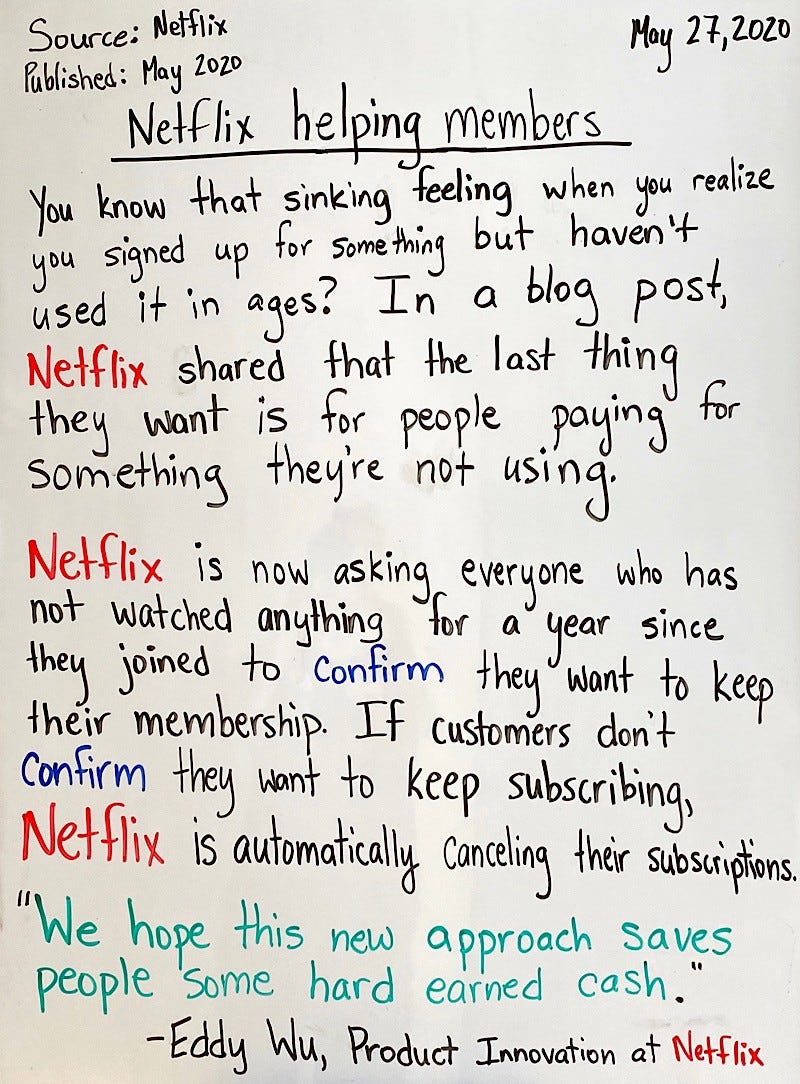 Source: Netflix
May 27, 2020
Published: May 2020
Netflix helping members
You know that sinking feeling when you realize
you signed up for something but haven't
used it in ages? In a blog post,
Netflix shared that the last thing
they want is for people paying for
something they're not using.
Netflix is now asking everyone who has
not watched anything for a year since
they joined to confirm they want to keep
their membership. If customers don't
confirm they want to keep subscribing,
Netflix is automatically canceling their subscriptions.
"We hope this new approach saves
people some hard earned cash."
-Eddy Wu, Product Innovation at Netflix